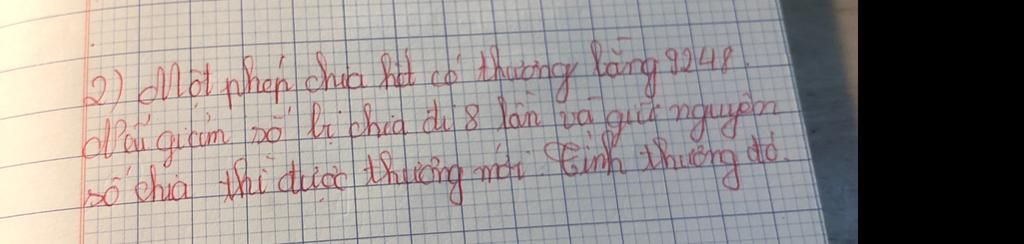 2) Một phép chia hết có thương bằng 9248.
Nếu giảm số bị chia đi 8 lần và giữ nguyên
số chia thì được thương mới. Tính thương đó.